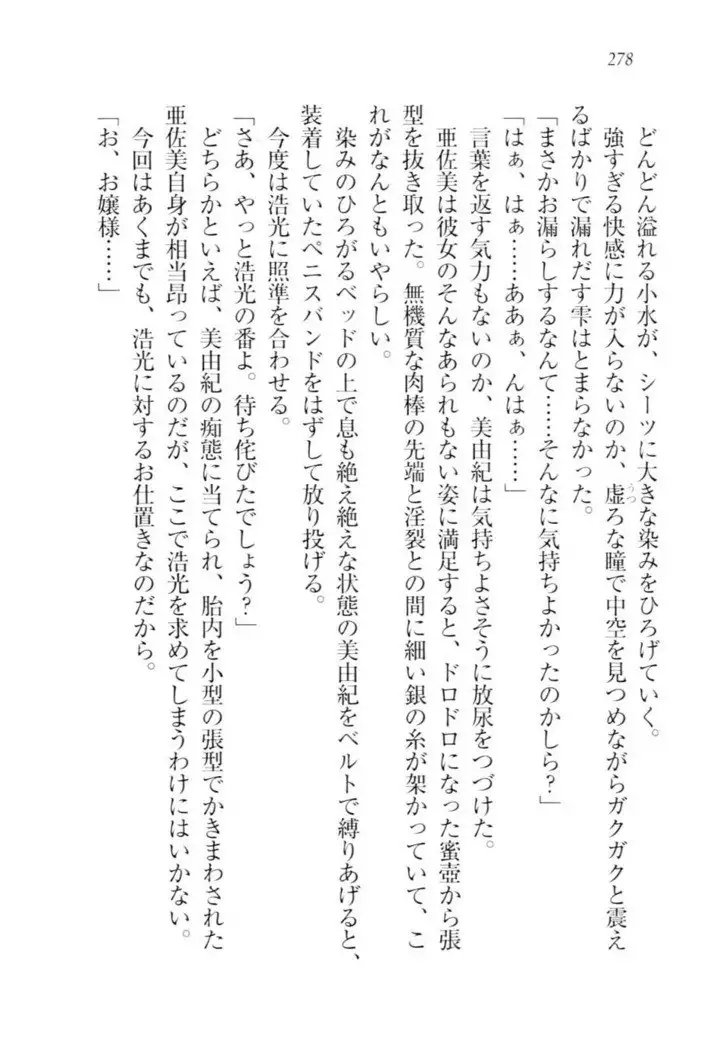 278
どんどん溢れる小水が、シーツに大きな染みをひろげていく。
強すぎる快感に力が入らないのか、虚ろな瞳で中空を見つめながらガクガクと震え
うつ
るばかりで漏れだす雫はとまらなかった。
「まさかお漏らしするなんて……そんなに気持ちよかったのかしら？」
「はぁ、はぁ……ああぁ、んはぁ……」
言葉を返す気力もないのか、美由紀は気持ちよさそうに放尿をつづけた。
亜佐美は彼女のそんなあられもない姿に満足すると、ドロドロになった蜜壺から張
型を抜き取った。無機質な肉棒の先端と淫裂との間に細い銀の糸が架かっていて、こ
れがなんともいやらしい。
染みのひろがるベッドの上で息も絶え絶えな状態の美由紀をベルトで縛りあげると、
装着していたペニスバンドをはずして放り投げる。
今度は浩光に照準を合わせる。
「さあ、やっと浩光の番よ。待ち侘びたでしょう？」
どちらかといえば、美由紀の痴態に当てられ、胎内を小型の張型でかきまわされた
亜佐美自身が相当昂っているのだが、ここで浩光を求めてしまうわけにはいかない。
今回はあくまでも、浩光に対するお仕置きなのだから。
「お、お嬢様……」